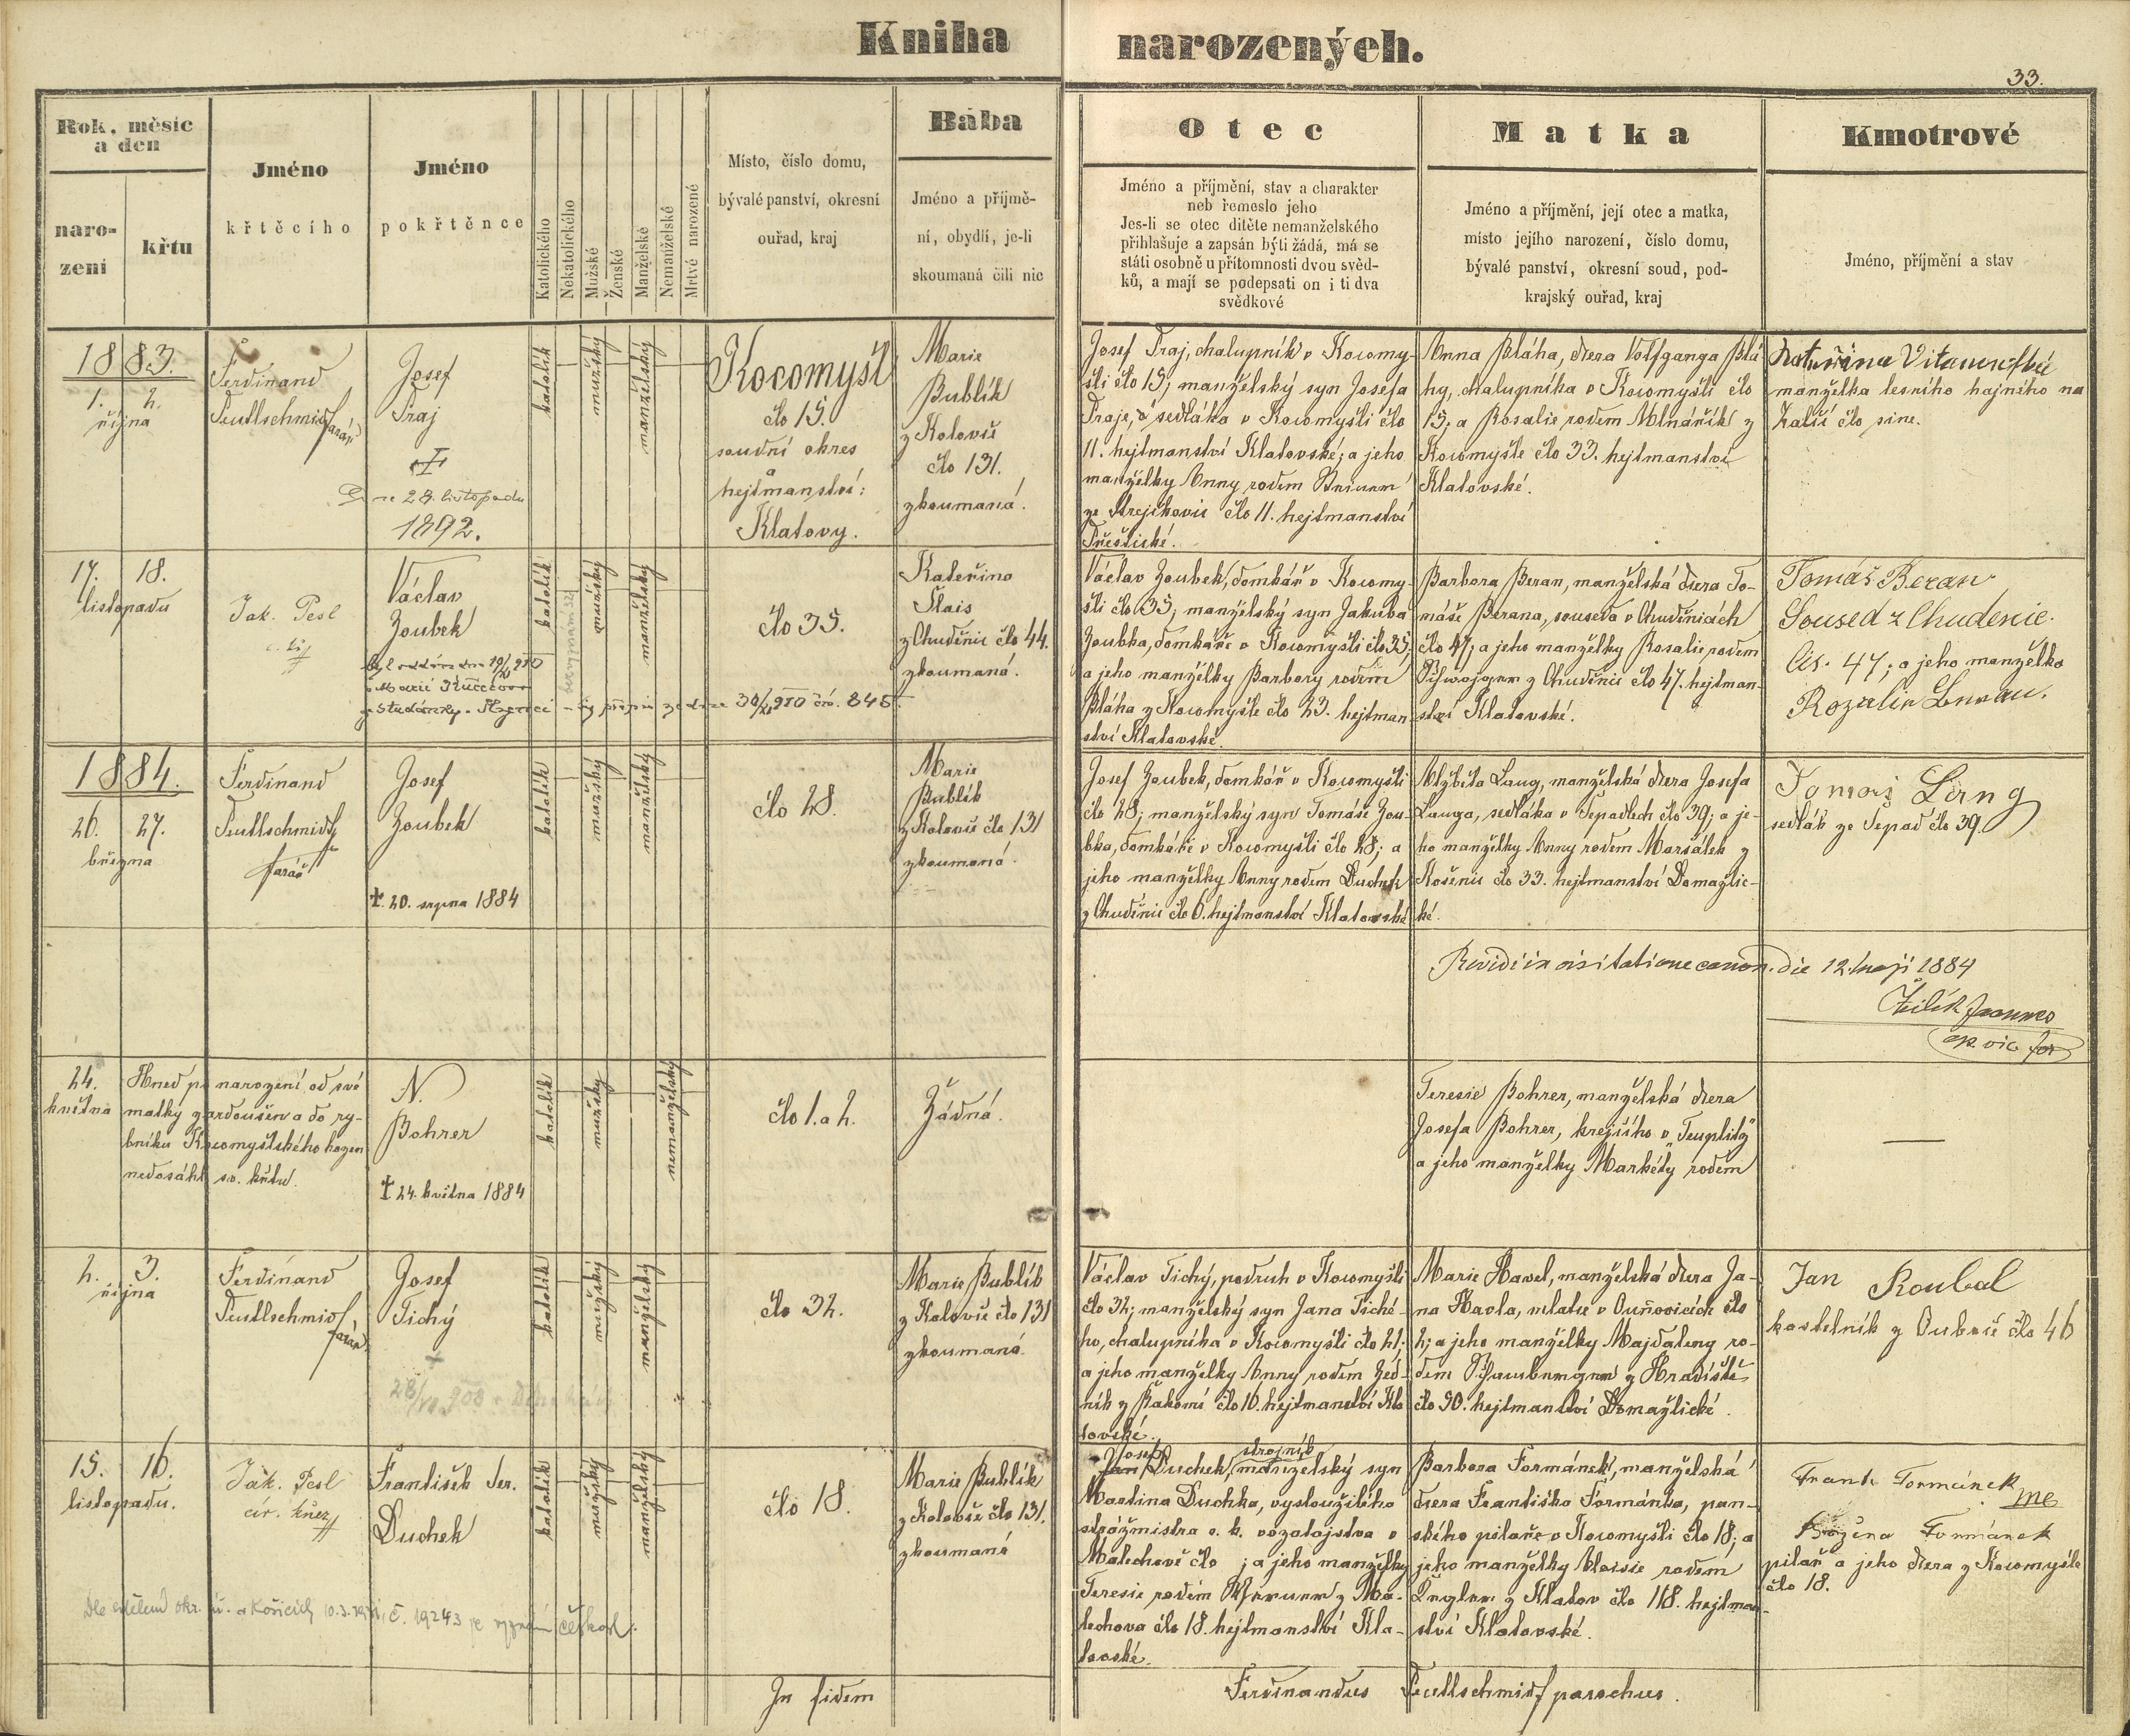 Kniha narozených.
33.
Rok, měsíc
a den
naro-
zení
křtu
Jméno
křtěcího
Jméno
pokřtěnce
Katolického
Nekatolického
Mužské
Ženské
Manželské
Nemanželské
Mrtvě narozené
Místo, číslo domu,
bývalé panství, okresní
ouřad, kraj
Bába
Jméno a příjmě-
ní, obydlí, je-li
skoumaná čili nic
Otec
Jméno a příjmení, stav a charakter
neb řemeslo jeho
Jes-li se otec dítěte nemanželského
přihlašuje a zapsán býti žádá, má se
státi osobně u přítomnosti dvou svěd-
ků, a mají se podepsati on i ti dva
svědkové
Matka
Jméno a příjmení, její otec a matka,
místo jejího narození, číslo domu,
bývalé panství, okresní soud, pod-
krajský ouřad, kraj
Kmotrové
Jméno, příjmení a stav
1883.
1. 2.
října
Ferdinand
Teutlschmid
farář
Josef
Traj
28. listopadu
1892.
katolík
mužský
manželský
Kocomyšl
čís 15.
soudní okres
a
hejtmanství:
Klatovy.
Marie
Bublík
z Koloveč
čís 131.
zkoumaná.
Josef Traj, chalupník v Kocomy-
šli čís 15; manželský syn Josefa
Traje, sedláka v Kocomyšli čís
11. hejtmanství Klatovské; a jeho
manželky Anny rodem
ze Strejčkovic čís 11. hejtmanství
Přeštické.
Anna Bláha, dcera Volfganga Blá-
hy, chalupníka v Kocomyšli čís
15; a Rosalie rodem Mlnářík z
Kocomyšle čís 33. hejtmanství
Klatovské.
Kateřina
manželka lesního hajného na
Zalší čís sine.
17. 18.
listopadu
Jak. Pesl
Václav
Zoubek
katolík
mužský
manželský
čís 35.
Kateřina
Slais
z Chuděnic čís 44.
zkoumaná.
Václav Zoubek, domkář v Kocomy-
šli čís 35; manželský syn Jakuba
Zoubka, domkáře v Kocomyšli čís 35;
a jeho manželky Barbory rodem
Bláha z Kocomyšle čís 23. hejtman-
ství Klatovské.
Barbora Beran, manželská dcera To-
máše Berana, souseda v Chuděnicích
čís 47; a jeho manželky Rosalie rodem
z Chuděnic čís 47. hejtman-
ství Klatovské.
Tomáš Beran
Soused z Chudenic.
Čís. 47; a jeho manželka
Rozalie
1884.
26. 27.
března
Ferdinand
Teutlschmid
farář
Josef
Zoubek
† 20. srpna 1884
katolík
mužský
manželský
čís 28.
Marie
Bublík
z Koloveč čís 131
zkoumaná.
Josef Zoubek, domkář v Kocomyšli
čís 28; manželský syn Tomáše Zou-
bka, domkáře v Kocomyšli čís 28; a
jeho manželky Anny rodem Duchek
z Chuděnic čís 6. hejtmanství Klatovské
Alžběta Lang, manželská dcera Josefa
Langa, sedláka v Sepadlech čís 39; a je-
ho manželky Anny rodem Maršálek z
Košenic čís 33. hejtmanství Domažlic-
ké.
Tomáš Lang
sedlák ze Sepad čís 39.
Revidi in visitatione canon. die 12. maji 1884
24.
května
Hned po narození od své
matky zardoušen a do ry-
bníku Kocomyšlského hozen
nedosáhl sv. křtu.
N.
Bohrer
† 24. května 1884
katolík
mužský
nemanželský
čís 1. a 2.
Žádná.
Teresie Bohrer, manželská dcera
Josefa Bohrer, krejčího v „Teuplitz"
a jeho manželky Markéty rodem
2. 3.
října
Ferdinand
Teutlschmid
farář
Josef
Tichý
katolík
mužský
manželský
čís 32.
Marie Bublík
z Koloveč čís 131
zkoumaná.
Václav Tichý, podruh v Kocomyšli
čís 32; manželský syn Jana Tiché-
ho, chalupníka v Kocomyšli čís 21;
a jeho manželky Anny rodem Zed-
ník z Bakomi čís 16. hejtmanství Kla-
tovské.
Marie Havel, manželská dcera Ja-
na Havla, v Ouňovicích čís
2; a jeho manželky Majdaleny ro-
dem z Hradiště
čís 90. hejtmanství Domažlické.
Jan Koubal
kostelník z Dubové čís 46
15. 16.
listopadu.
Jak. Pesl
cír. kněz
František Ser.
Duchek
katolík
mužský
manželský
čís 18.
Marie Bublík
z Koloveč čís 131.
zkoumaná
Josef strojník
Jan Duchek, manželský syn
Martina Duchka, vysloužilého
strážmistra c. k. vozatajstva v
Malechově čís ; a jeho manželky
Teresie rodem z Ma-
lechova čís 18. hejtmanství Kla-
tovské.
Barbora Formánek, manželská
dcera Františka Formánka, pan-
ského pilaře v Kocomyšli čís 18; a
jeho manželky Aloisie rodem
z Klatov čís 118. hejtman-
ství Klatovské.
Frant. Formánek
Božena Formánek
pilař a jeho dcera z Kocomyšle
čís 18.
In fidem
Ferdinandus Teutlschmid parochus.